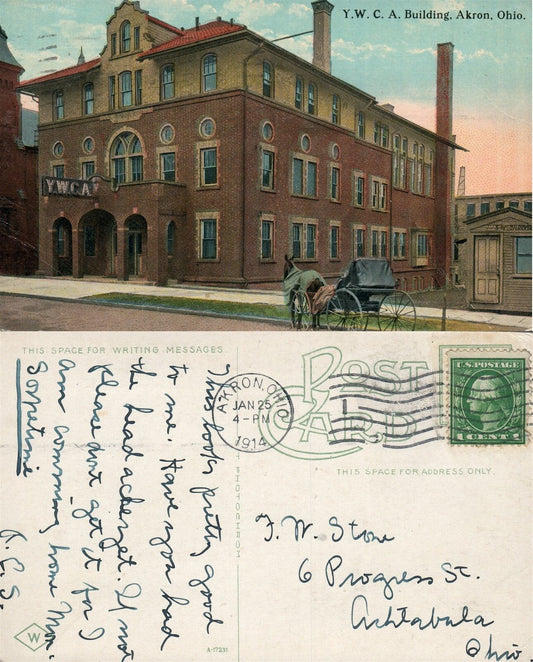 Y.W.C.A. Building, Akron, Ohio.
Y.W.C.A.
THIS SPACE FOR WRITING MESSAGES.
This looks pretty good
to me. Have you had
the head aches yet. If not
Please dont get it for I
am comming home Mon.
Sometime
R. E. S.
W
A-17231
POST CARD
AKRON, OHIO
JAN 25
4-PM
1914
U.S. POSTAGE
1 CENT 1
THIS SPACE FOR ADDRESS ONLY.
F. W. Stone
6 Progress St.
Ashtabula
Ohio.